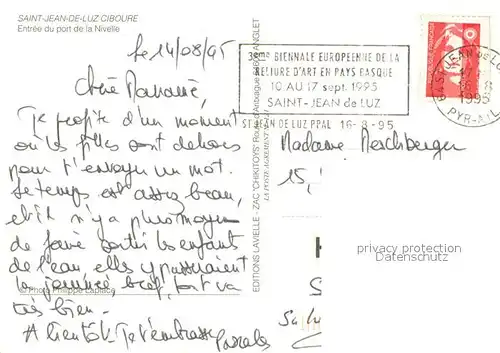 SAINT-JEAN-DE-LUZ CIBOURE
Entrée du port de la Nivelle
le 14/08/95
Chère Maman,
Je profite d'un moment
où les filles sont dehors
pour t'envoyer un mot.
Le temps est assez beau,
et il n'y a plus moyen
de faire sortir les enfants
de l'eau, elles y passeraient
la journée, bref, tout va
très bien.
A bientôt. Je t'embrasse
© Photo Philippe Laplace
EDITIONS LAVIELLE - ZAC "CHIKITOYS"
BIENNALE EUROPEENNE DE LA
RELIURE D'ART EN PAYS BASQUE
10 AU 17 sept. 1995
SAINT-JEAN de LUZ
ST JEAN DE LUZ PPAL 16-8-95
1995
Madame
15,
privacy protection
Datenschutz